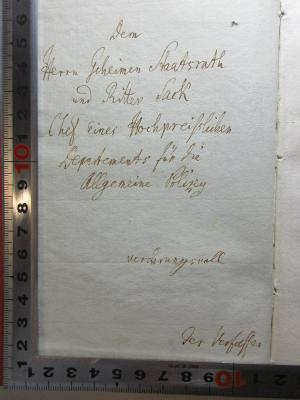 Dem
Herrn Geheimen Staatsrath
und Ritter Sack
Chef Eines Hochpreißlichen
Departements für die
Allgemeine Polizey
verehrungsvoll
Der Verfasser